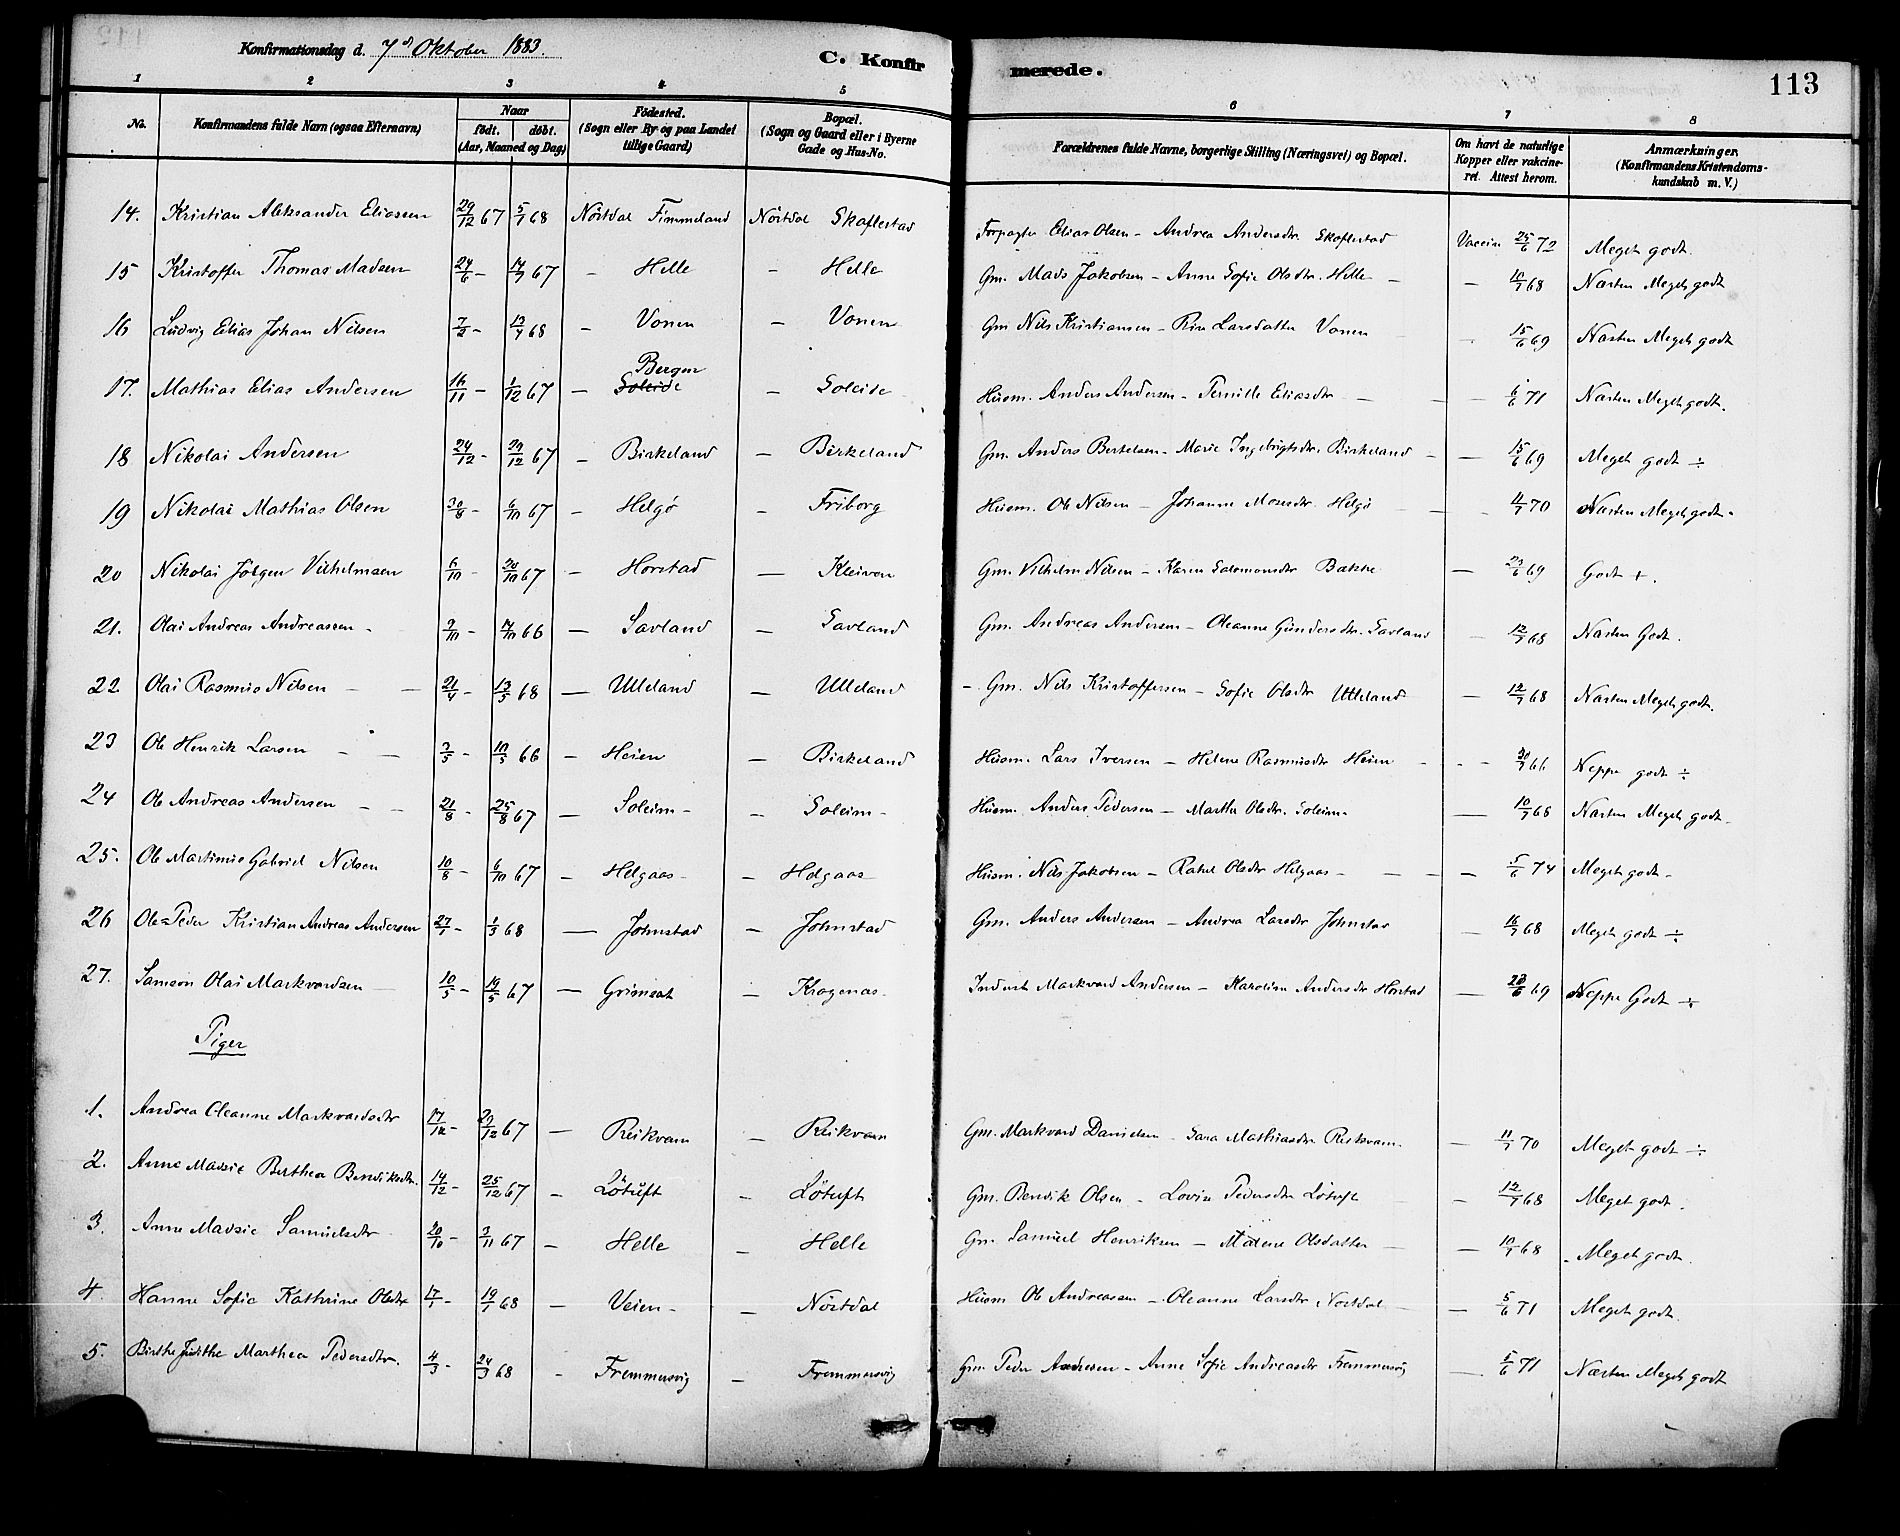 Konfirmationsdag d. 7de Oktober 1883.
C. Konfirmerede.
113
1 2 3 4 5 6 7 8
No. Konfirmandens fulde Navn (ogsaa Efternavn) Naar födt. döbt. (Aar, Maaned og Dag) Födested. (Sogn eller By og paa Landet tillige Gaard) Bopæl. (Sogn og Gaard eller i Byerne Gade og Hus-No. Forældrenes fulde Navne, borgerlige Stilling (Næringsvei) og Bopæl. Om havt de naturlige Kopper eller vakcineret. Attest herom. Anmærkninger. (Konfirmandens Kristendomskundskab m. V.)
14. Kristian Aleksander Eliasen 29/12 67 5/1 68 Nöstdal Fimmeland Nöstdal Skaflestad Forpagter Elias Olsen - Andrea Andersdtr. Skaflestad Vaccin 25/6 72 Meget godt.
15 Kristoffer Thomas Madsen 24/6 - 14/7 67 - Helle - Helle Gm. Mads Jakobsen - Anne Sofie Olsdtr. Helle - - 10/7 68 Næsten Meget godt
16 Ludvig Elias Johan Nilsen 7/2 - 13/4 68 - Vonen - Vonen Gm Nils Kristiansen - Larsdatter Vonen - 15/6 69 Næsten Meget godt
17. Mathias Elias Andersen 16/11 - 1/12 67 - Soleide Bergen - Soleide Husm. Anders Andersen - Pernille Eliasdtr - - - 6/6 71 Næsten Meget godt.
18 Nikolai Andersen 24/12 - 29/12 67 - Birkeland - Birkeland Gm. Anders Bertelsen - Marie Ingebrigtsdtr. Birkeland - - 15/6 69 Meget godt ÷
19 Nikolai Mathias Olsen 30/8 - 6/10 67 - Helgö - Friborg Husm. Ole Nilsen - Johanne Mosesdtr. Helgö - - 4/7 70 Næsten Meget godt -
20 Nikolai Jörgen Vilhelmsen 6/10 - 20/10 67 - Horstad - Kleiven Gm. Vilhelm Nilsen - Karen Salomonsdtr Bakke - 23/6 69 Godt +.
21. Olai Andreas Andreassen - 9/10 - 14/10 66 - Savland - Savland Gm. Andreas Andersen - Oleanne Gundersdtr. Savland - 12/7 68 Næsten Godt.
22 Olai Rasmus Nilsen - - 21/4 - 13/5 68 - Ulleland - Ulleland - Gm. Nils Kristoffersen - Sofie Olsdtr Ulleland - 12/7 68 Næsten Meget godt.
23 Ole Henrik Larsen - - 3/5 - 10/5 66 - Heien - Birkeland Husm. Lars Iversen - Helene Rasmusdtr Heien - - - 20/7 66 Neppe godt ÷
24 Ole Andreas Andersen - - 21/8 - 25/8 67 - Soleim - - Soleim - Husm. Anders Pedersen - Marthe Olsdtr. Soleim - - 10/7 68 Næsten Meget godt -
25. Ole Martinus Gabriel Nilsen 10/8 - 6/10 67 - Helgaas - - Helgaas Husm. Nils Jakobsen - Rakel Olsdtr Helgaas - - - - 5/6 74 Meget godt -
26 Ole Peder Kristian Andreas Andersen 27/1 - 1/3 68 - Johnstad - Johnstad Gm. Anders Andersen - Andrea Larsdtr Johnstad - 16/7 68 Meget godt ÷
27. Samson Olai Markvardsen - 10/5 - 19/5 67 - Grimset - Kragenæs. Inderst Markvard Andersen - Karoline Andersdtr Horstad - 23/6 69 Neppe Godt ÷
Piger
1. Andrea Oleanne Markvardsdtr 17/12 - 29/12 67 - Reikvam - Reikvam Gm. Markvard Danielsen - Sara Mathiasdtr Reikvam. - 11/7 70 Meget godt ÷
2. Anne Madsie Berthea Bendiksdtr. 14/12 - 25/12 67 - Lötuft - Lötuft Gm. Bendik Olsen - Lovise Pedersdtr Lötuft - 12/7 68 Meget godt.
3. Anne Madsie Samuelsdtr 20/10 - 3/11 67 - Helle - Helle Gm. Samuel Henriksen - Malene Olsdatter - - 10/7 68 - Meget godt.
4. Hanne Sofie Kathrine Olsdtr 17/1 - 19/1 68 - Veien - - Nöstdal Husm Ole Andreassen - Oleanne Larsdtr, Nöstdal - - 5/6 71 Meget godt.
5. Birthe Judithe Marthea Pedersdtr. 4/3 - 24/3 68 - Fremmersvig - Fremmersvig Gm. Peder Andresen - Anne Sofie Andreasdtr Fremmersvig - 5/6 71 Næsten Meget godt